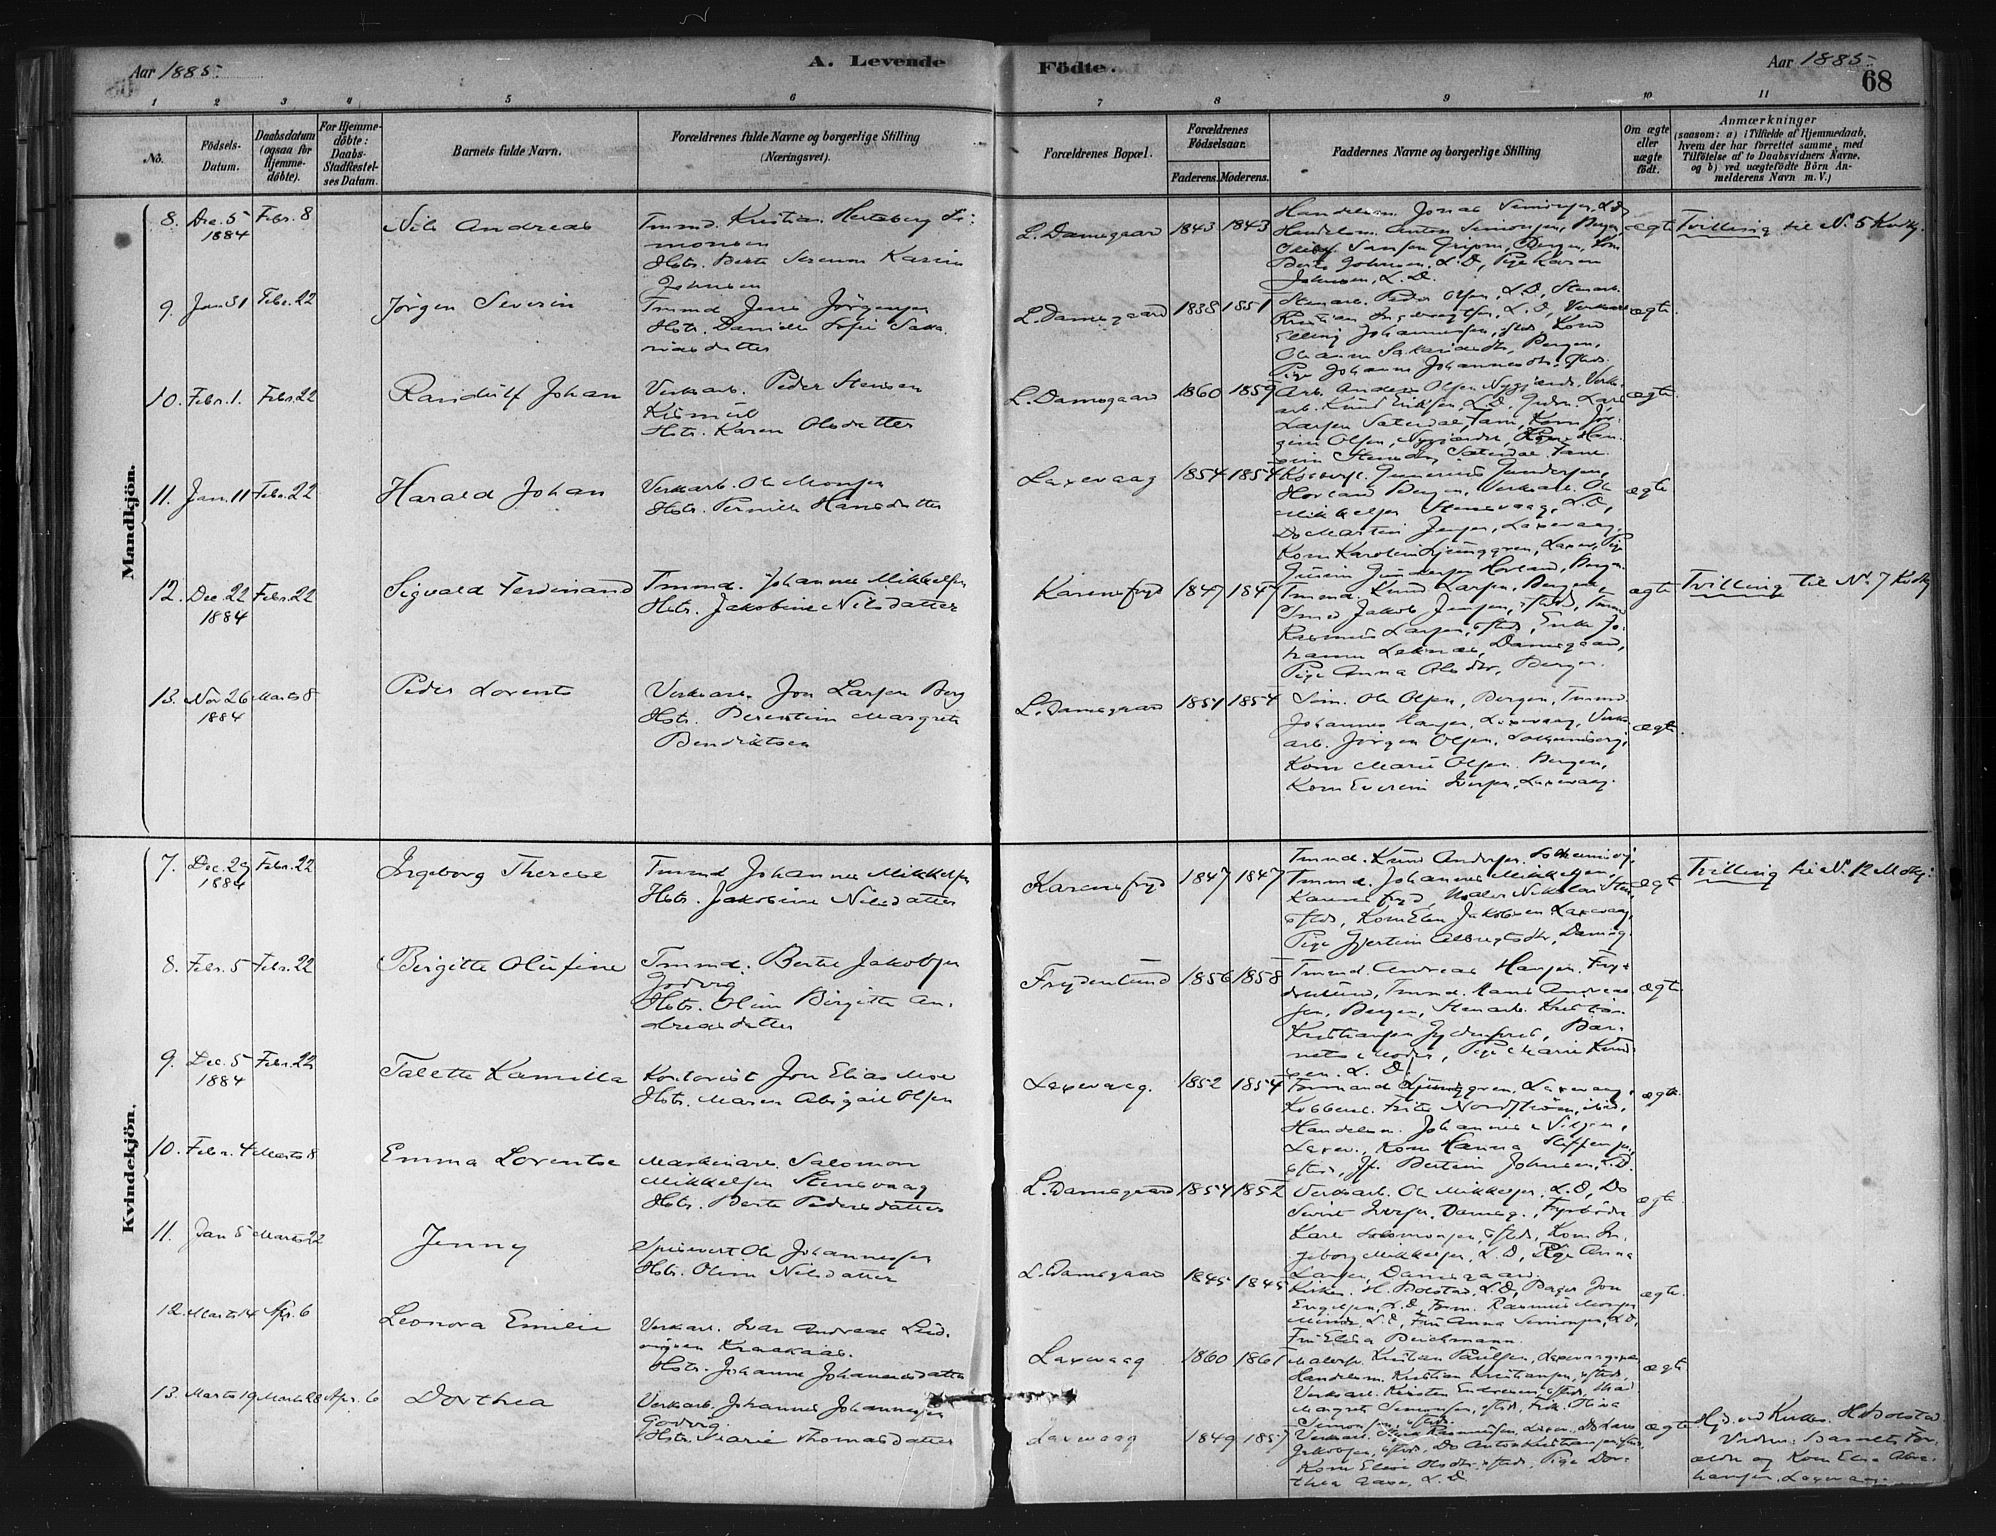 Aar 1885. A. Levende Födte. Aar 1885. 68
1 2 3 4 5 6 7 8 9 10 11
No. Födsels-Datum. Daabsdatum (ogsaa for Hjemme-döbte). For Hjemme-döbte: Daabs-Stadfæstelses Datum. Barnets fulde Navn. Forældrenes fulde Navne og borgerlige Stilling (Næringsvei). Forældrenes Bopæl. Forældrenes Födselsaar. Faderens. Moderens. Faddernes Navne og borgerlige Stilling Om ægte eller uægte födt. Anmærkninger (saasom: a) i Tilfælde af Hjemmedaab, hvem der har forrettet samme, med Tilföielse af to Daabsvidners Navne, og b) ved uægtefödte Börn Anmelderens Navn m. V.)
Mandkjön.
8. Dec. 5 1884 Febr. 8 Nils Andreas Tmmd. Kristian Hertsberg Simonsen
Hstr. Berte Serena Karine Johnsen
L. Damsgaard 1843 1843 Handelsm. Jonas Simonsen, L.D.
Handelsm. Anton Simonsen, Bergen,
Johnsen, L.D. ægte Tvilling til N. 5 Kvkj.
9. Jan 31 Febr. 22 Jörgen Severin Tmmd Jens Jörgensen
Hstr. Danielle Sofie Sakariasdatter
L. Damsgaard 1838 1851 Stenarb. Peder Olsen, L.D., Stenarb.
Elling Johannesen, ofsteds, Kone
Pige Johanne Johannesdtr, ofsteds. ægte.
10. Febr. 1. Febr. 22 Randulf Johan Verksarb. Peder Stensen
Hstr. Karen Olsdatter
L. Damsgaard 1860 1859 Arb. Anders Olsen Nygjerdet, Verks-
arb. Knud Eriksen, L.D., Lars
Larsen Sæterdal, Fane, Kone Jör-
gine Olsen, Nygjerdet, Kone Han-
sine Stensen, Sæterdal Fane. ægte.
11. Jan. 11 Febr. 22 Harald Johan Verksarb. Ole Monsen
Hstr. Pernille Hansdatter
Laxevaag 1854 1854 Gunerius Gundersen,
Hovland Bergen, Verksarb. Ole
Mikkelsen Stensvaag, L.D.,
Do Martin Jensen, Laxevaag,
Kone Karoline Ljunggren, Laxev., Pige
Gundersen Hovland, Bergen. ægte
12. Dec. 22 1884 Febr. 22 Sigvald Ferdinand Tmmd. Johannes Mikkelsen
Hstr. Jakobine Nilsdatter
Karensfryd 1847 1847 Tmmd. Knud Larsen, Bergen,
Smed Jakob Jensen, ofsteds, Tmmd
Rasmus Larsen, ofsteds, Enke Jo-
hanne Damsgaard,
Pige Anna Olsdtr, Bergen. ægte Tvilling til No 7 Kvkj
13. Nov 26 1884 Marts 8 Peder Lorents Verksarb. Jon Larsen Berg
Hstr. Berentine Margrete
Bendiktsen
L. Damsgaard 1851 1854 Söm. Ole Olsen, Bergen, Tmmd.
Johannes Hansen, Laxevaag, Verks-
arb. Jörgen Olsen,
Kone Marie Olsen, Bergen,
Kone Everine Iversen, Laxevaag. ægte.
Kvindekjön.
7. Dec. 29 1884 Febr. 22 Ingeborg Therese Tmmd Johannes Mikkelsen
Hstr. Jakobine Nilsdatter
Karensfryd 1847 1847 Tmmd. Knud Andersen,
Tmmd. Johannes Mikkelsen,
Karensfryd, Maler Nikolai
ofsteds, Kone Elen Jakobsen Laxevaag,
Pige Gjertine Albregtsdtr, Damsg. ægte Tvilling til N. 12 Mdkj.
8. Febr. 5 Febr. 22 Birgitte Olufine Tmmd. Berthe Jakobsen
Godvig
Hstr. Oline Birgitte An-
dreasdatter
Frydenlund 1856 1858 Tmmd. Andreas Hansen, Fry-
denlund, Tmmd. Hans Andreas-
sen, Bergen, Stenarb. Kristian
Kristiansen Gyldenpris, Bar-
nets Moder, Pige Marie Knud-
sen. L.D. ægte
9. Dec. 5 1884 Febr. 22 Talette Kamilla Kontorist Jon Elias Moe
Hstr. Maren Abigael Olsen
Laxevaag. 1852 1854 Formand Ljunggren, Laxevaag,
Kobbersl. Frits Nordström, ibid,
Handelsm. Johannes Nilsen,
Laxev., Kone Hanna Steffensen,
ofsteds, Jfr. Bertine Johnsen, L.D. ægte.
10. Febr. 4 Marts 8 Emma Lorentse Maskinarb. Salomon
Mikkelsen Stensvaag
Hstr. Berte Pedersdatter
L. Damsgaard 1854 1852 Verksarb. Ole Mikkelsen, L.D., Do
Sivert Iversen, Damsg., Fyrböder
Karl Salomonsen, ofsteds, Kone In-
geborg Mikkelsen, L.D., Pige Anna
Larsen, Damsgaard. ægte.
11. Jan 5 Marts 22 Jenny Spisevert Ole Johannessen
Hstr. Oline Nilsdatter
L. Damsgaard 1845 1845 Kirkes. H. Bolstad, L.D., Bager Jon
Engelsen, L.D., Form. Rasmus Monsen
Minde, L.D., Fru Anna Simonsen, L.D.,
Fru Elisa Beichmann. ægte.
12. Marts 14 Apr. 6 Leonora Emilie Verksarb. Ivar Andreas Lud-
vigsen Kraakaas.
Hstr. Johanne Johannesdatter
Laxevaag 1860 1861 Malersv. Kristian Paulsen, Laxevaag,
Handelsm. Kristian Kristiansen, ofsteds,
Verksarb. Kirsten Endresen, ofsteds,
Margrete Simonsen, ofsteds, Frk. Stina
Simonsen, ofsteds. ægte
13. Marts 19 Marts 28 Apr. 6 Dorthea Verksarb. Johannes Johannessen
Godvig.
Hstr. Marie Thomasdatter
Laxevaag 1849 1857 Verksarb. Rasmussen, Laxev., Do Lars
Jakobsen, ofsteds, Do Anton Kristiansen, ofsteds,
Kone Elise Olsdtr, ofsteds, Pige Dor-
thea Aase, L.D. ægte Hjd. ved Kirkes. H. Bolstad.
Vidner: Barnets For-
ældre og Kone Elise Abra-
hamsen, Laxevaag.